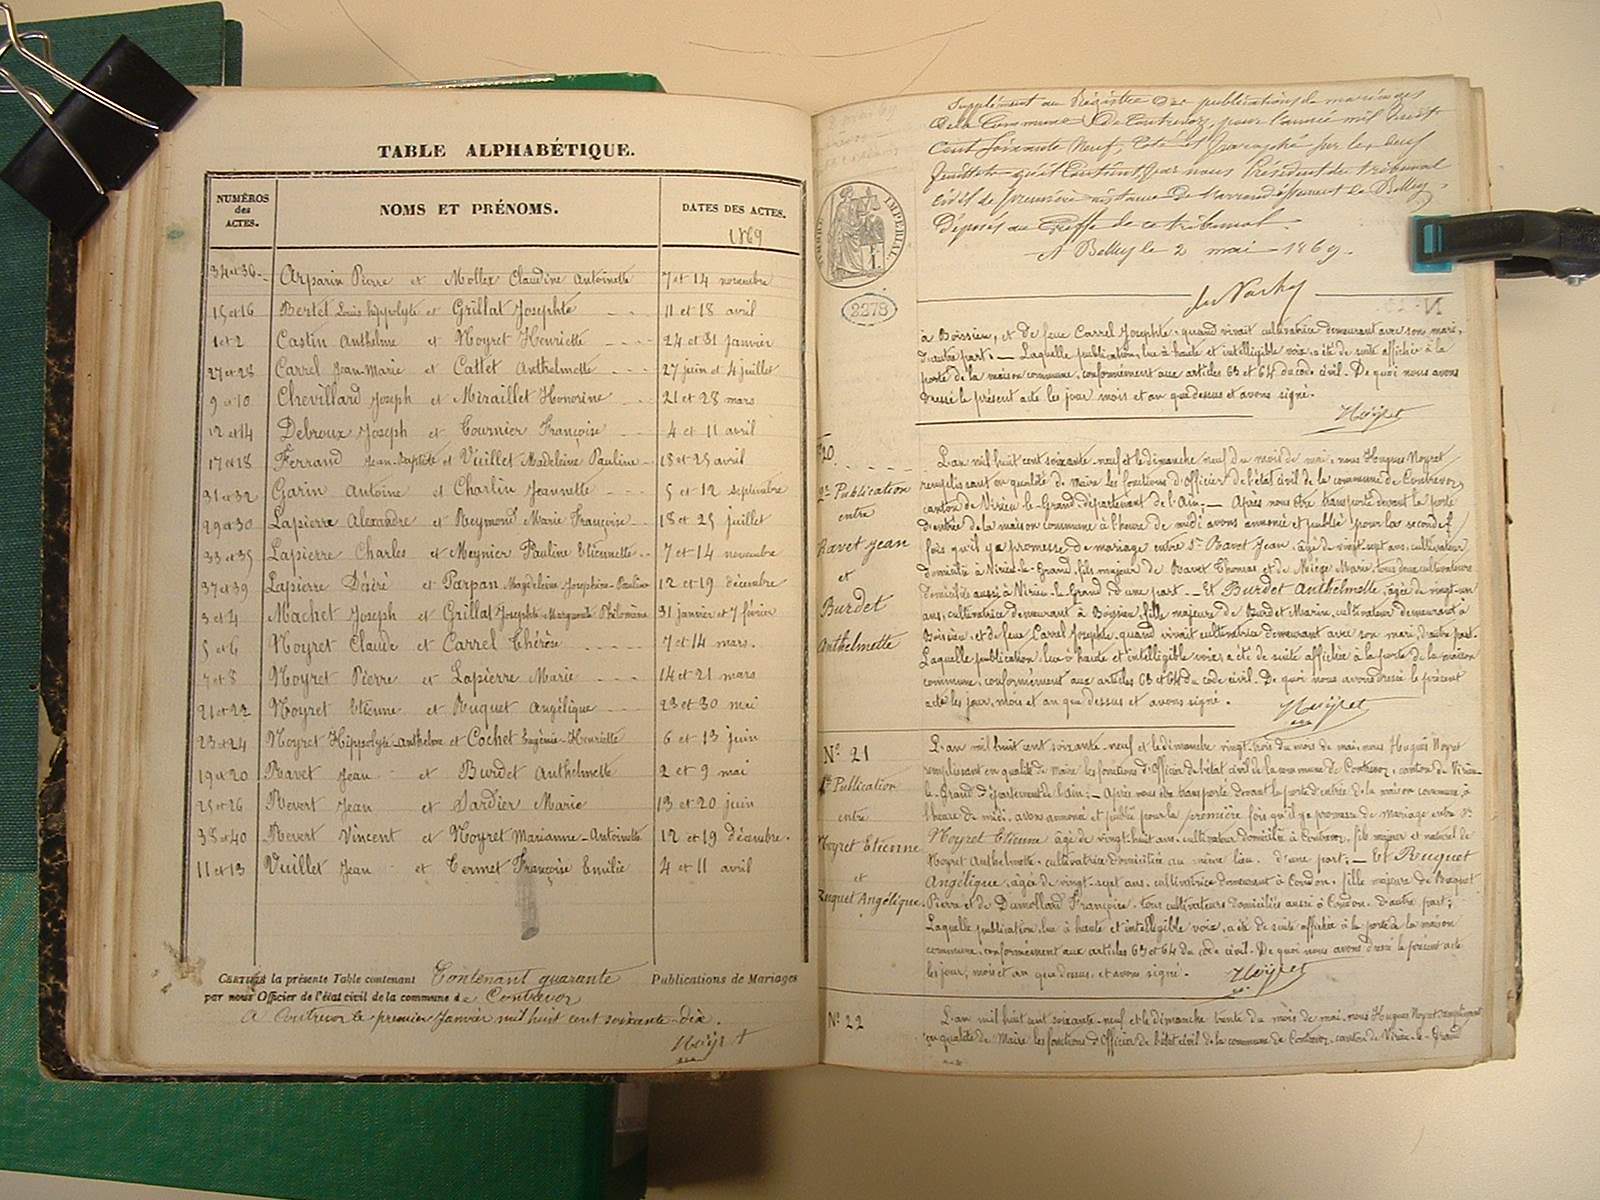 TABLE ALPHABÉTIQUE.
NUMÉROS des ACTES.
NOMS ET PRÉNOMS.
DATES DES ACTES.
1869
34 et 36 Arparin Pierre et Mollex Claudine Antoinette 7 et 14 novembre
15 et 16 Bertet Louis hippolyte et Grillat Josephte 11 et 18 avril
1 et 2 Castin Anthelme et Noyret Henriette 24 et 31 janvier
27 et 28 Carrel Jean-Marie et Cattet Anthelmette 27 juin et 4 juillet
9 et 10 Chevillard Joseph et Miraillet Honorine 21 et 28 mars
12 et 14 Debroux Joseph et Cournier Françoise 4 et 11 avril
17 et 18 Ferrand Jean-Baptiste et Vuillet Madeleine Pauline 18 et 25 avril
31 et 32 Garin Antoine et Charlin Jeannette 5 et 12 septembre
29 et 30 Lapierre Alexandre et Reymond Marie Françoise 18 et 25 juillet
33 et 35 Lapierre Charles et Meynier Pauline Etiennette 7 et 14 novembre
37 et 39 Lapierre Désiré et Parpan Magdeleine Josephine-Pauline 12 et 19 décembre
3 et 4 Machet Joseph et Grillat Josephte Marguerite Philomène 31 janvier et 7 février
5 et 6 Noyret Claude et Carrel Thérèse 7 et 14 mars.
7 et 8 Noyret Pierre et Lapierre Marie 14 et 21 mars
21 et 22 Noyret Etienne et Ruquet Angélique 23 et 30 mai
23 et 24 Noyret Hippolyte-Anthelme et Cochet Eugénie-Henriette 6 et 13 juin
19 et 20 Ravet Jean et Burdet Anthelmette 2 et 9 mai
25 et 26 Revert Jean et Sardier Marie 13 et 20 juin
38 et 40 Revert Vincent et Noyret Marianne-Antoinette 12 et 19 décembre.
11 et 13 Vuillet Jean et Termet Françoise Emilie 4 et 11 avril
CERTIFIÉ la présente Table contenant Contenant quarante Publications de Mariages
par nous Officier de l'état civil de la commune de Contrevoz
A Contrevoz le premier Janvier mil huit cent soixante-dix.
Noyret
Supplément au Registre des publications de mariages
de la Commune de Contrevoz, pour l'année mil huit
Cent Soixante Neuf, Coté et paraphé sur les deux
feuillets qu'il Contient, par nous Président du tribunal
civil de première instance de l'arrondissement de Belley,
Déposés au Greffe de ce tribunal.
A Belley le 2 mai 1869.
TIMBRE IMPERIAL
2278
à Boissieu, et de feue Carrel Josephte, quand vivait cultivatrice demeurant avec son mari,
d'autre part; — Laquelle publication, lue à haute et intelligible voix a été de suite affichée à la
porte de la maison commune, conformément aux articles 63 et 64 du code civil. De quoi nous avons
dressé le présent acte les jour mois et an que dessus et avons signé.
Noyret
20.
2e Publication
entre
Ravet Jean
et
Burdet
Anthelmette
L'an mil huit cent soixante-neuf et le dimanche neuf du mois de mai, nous Hugues Noyret
remplissant en qualité de maire les fonctions d'Officier de l'état civil de la commune de Contrevoz
canton de Virieu-le-Grand, département de l'Ain; — Après nous être transporté devant la porte
d'entrée de la maison commune à l'heure de midi avons annoncé et publié pour la seconde
fois qu'il y a promesse de mariage entre Sr Ravet Jean, âgé de vingt-sept ans, cultivateur
domicilié à Virieu-le-Grand, fils majeur de Ravet Thomas et de Miège Marie tous deux cultivateurs
domiciliés aussi à Virieu-le-Grand d'une part. — Et Burdet Anthelmette, âgée de vingt-un
ans, cultivatrice demeurant à Boissieu, fille majeure de Burdet Marin, cultivateur demeurant à
Boissieu, et de feue Carrel Josephte, quand vivait cultivatrice demeurant avec son mari, d'autre part.
Laquelle publication, lue à haute et intelligible voix a été de suite affichée à la porte de la maison
commune, conformément aux articles 63 et 64 du code civil. De quoi nous avons dressé le présent
acte les jour, mois et an que dessus et avons signé.
Noyret
No. 21
1re Publication
entre
Noyret Etienne
et
Ruquet Angélique
L'an mil huit cent soixante-neuf et le dimanche vingt-trois du mois de mai, nous Hugues Noyret
remplissant en qualité de maire les fonctions d'Officier de l'état civil de la commune de Contrevoz, canton de Virieu-
le-Grand département de l'Ain; — Après nous être transporté devant la porte d'entrée de la maison commune à
l'heure de midi, avons annoncé et publié pour la première fois qu'il y a promesse de mariage entre Sr
Noyret Etienne âgé de vingt-huit ans, cultivateur domicilié à Contrevoz, fils majeur et naturel de
Noyret Anthelmette, cultivatrice domiciliée au même lieu, d'une part; — Et Ruquet
Angélique, âgée de vingt-sept ans, cultivatrice demeurant à Condon, fille majeure de Ruquet
Pierre et de Dumollard Françoise, tous cultivateurs domiciliés aussi à Condon, d'autre part;
Laquelle publication, lue à haute et intelligible voix, a été de suite affichée à la porte de la maison
commune, conformément aux articles 63 et 64 du code civil. De quoi nous avons dressé le présent acte
les jour, mois et an que dessus, et avons signé.
Noyret
No. 22
L'an mil huit cent soixante-neuf et le dimanche trente du mois de mai, nous Hugues Noyret remplissant
en qualité de Maire les fonctions d'Officier de l'état civil de la commune de Contrevoz, canton de Virieu-le-Grand